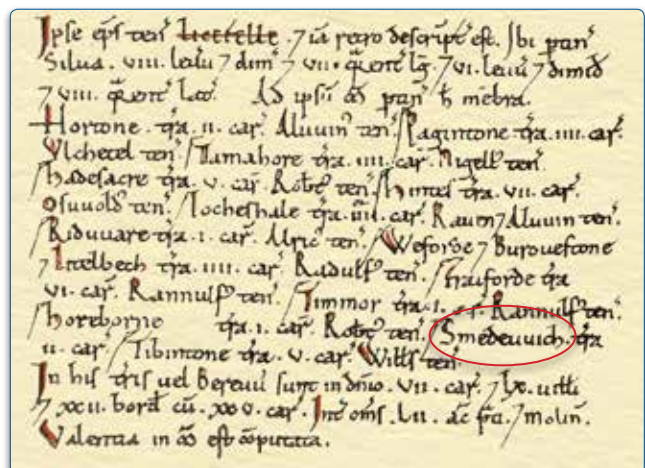 Ipse ep̄s ten' Licefelle . ⁊ iā retro descript' est. Ibi ptin'
Silua . viii. leuū ⁊ dim' ⁊ vii. q̄rent' lḡ ⁊ vi. leuū ⁊ dimid
⁊ viii. q̄rent' lat'. Ad ipsū m̄ ptin' h̄ mēbra.
Hortone . tr̄a . ii. car'. Aluuin' ten'. Ragintone tr̄a . iiii. car'.
Vlchetel ten'. Tamahore tr̄a . iiii. car'. Nigell' ten'.
Hadesacre tr̄a . v. car'. Robt' ten'. Hintes tr̄a . vii. car'.
Osuuold' ten'. Tocheshale tr̄a . iiii. car'. Rauen ⁊ Aluuin ten'.
Riduuare tr̄a . i. car'. Alric' ten'. Weforde ⁊ Burouestone
⁊ Litelbech tr̄a . iiii. car'. Radulf' ten'. tr̄a
vi. car'. Rannulf' ten'. Timmor tr̄a . i. car'. Rannulf' ten'.
Horeborne tr̄a . i. car'. Robt' ten'. Smedeuuich . tr̄a
ii. car'. Tibintone tr̄a . v. car'. Willś ten'.
In his tr̄is uel Bereuu' sunt in dn̄io . vii. car' ⁊ lx. uilli
⁊ xxii. bord cū . xxv. car'. Int' om̄s . lii. ac p̄ti. ⁊ molin'.
Valentia in m̄ est cōputata.